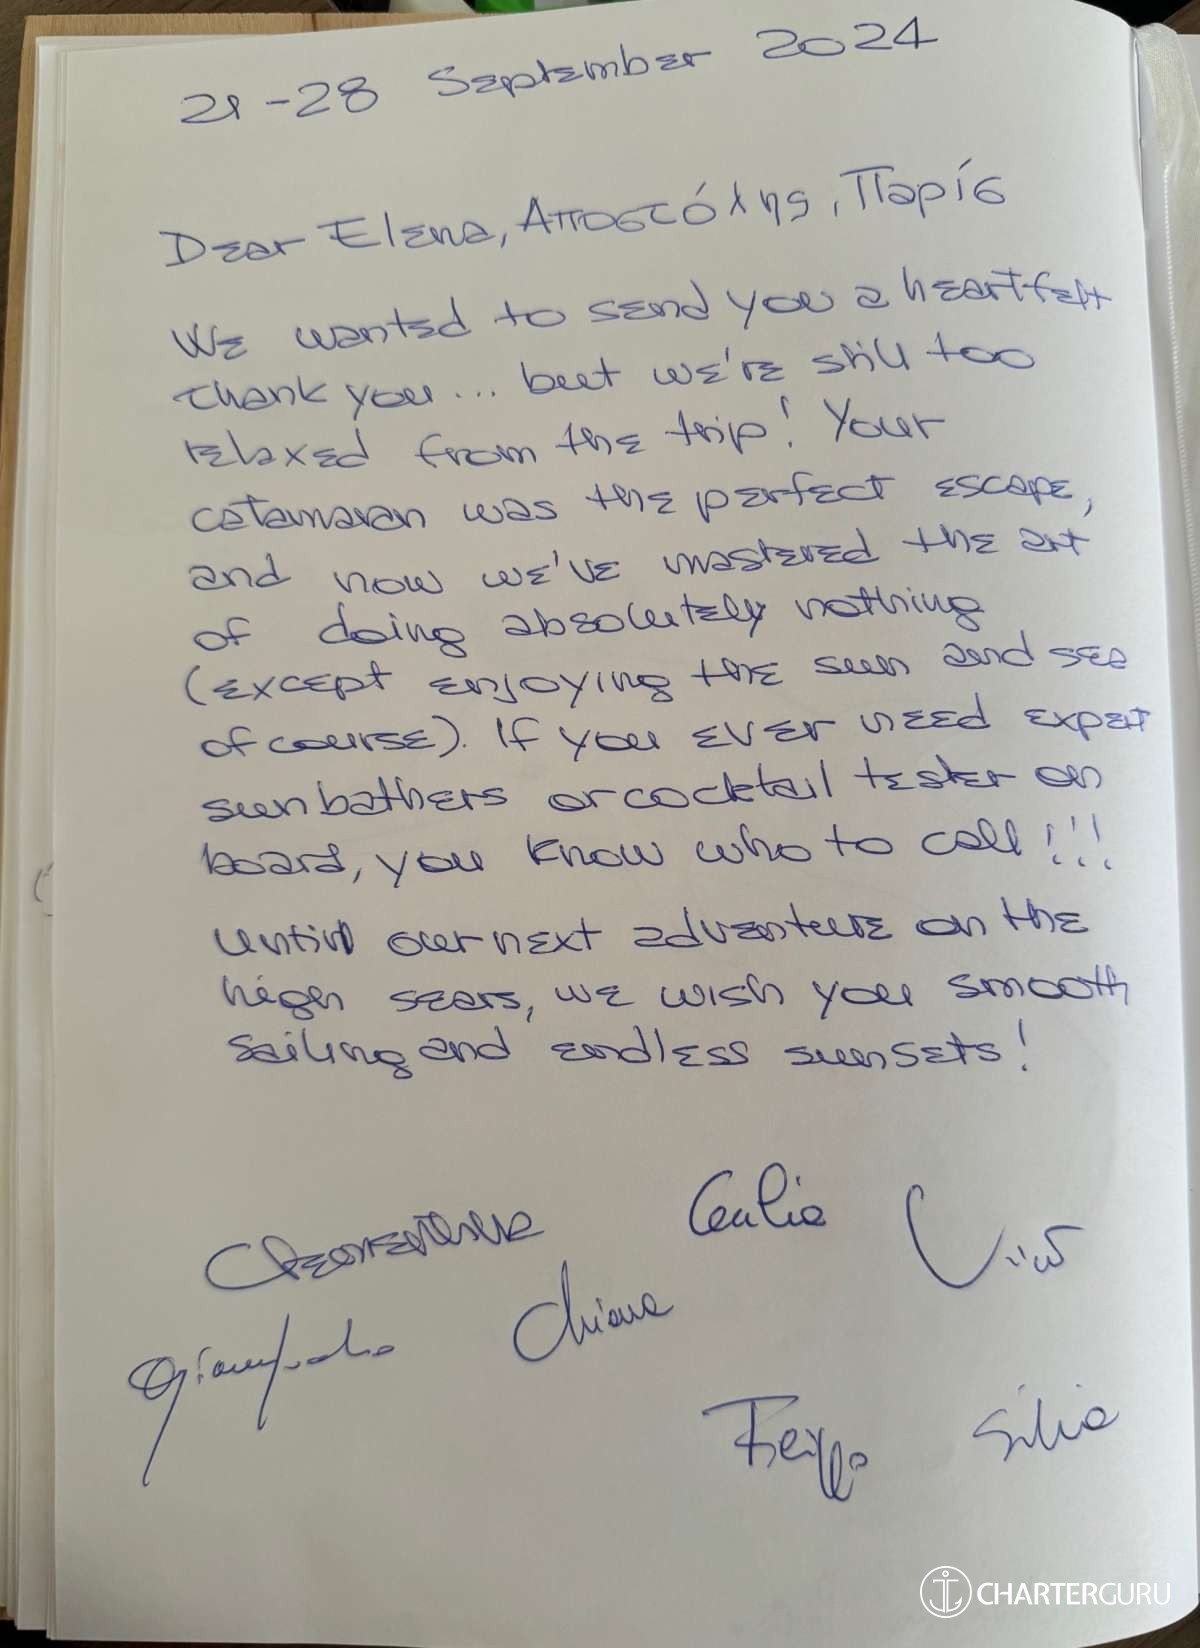 21-28 September 2024
Dear Elena, Αποστόλης, Παρίς
We wanted to send you a heartfelt
thank you... but we're still too
relaxed from the trip! Your
catamaran was the perfect escape,
and now we've mastered the art
of doing absolutely nothing
(except enjoying the sun and sea
of course). If you ever need expert
sunbathers or cocktail tester on
board, you know who to call!!!
Until our next adventure on the
high sears, we wish you smooth
sailing and endless sunsets!
Cecilia
Chiara
Silvia
CHARTERGURU